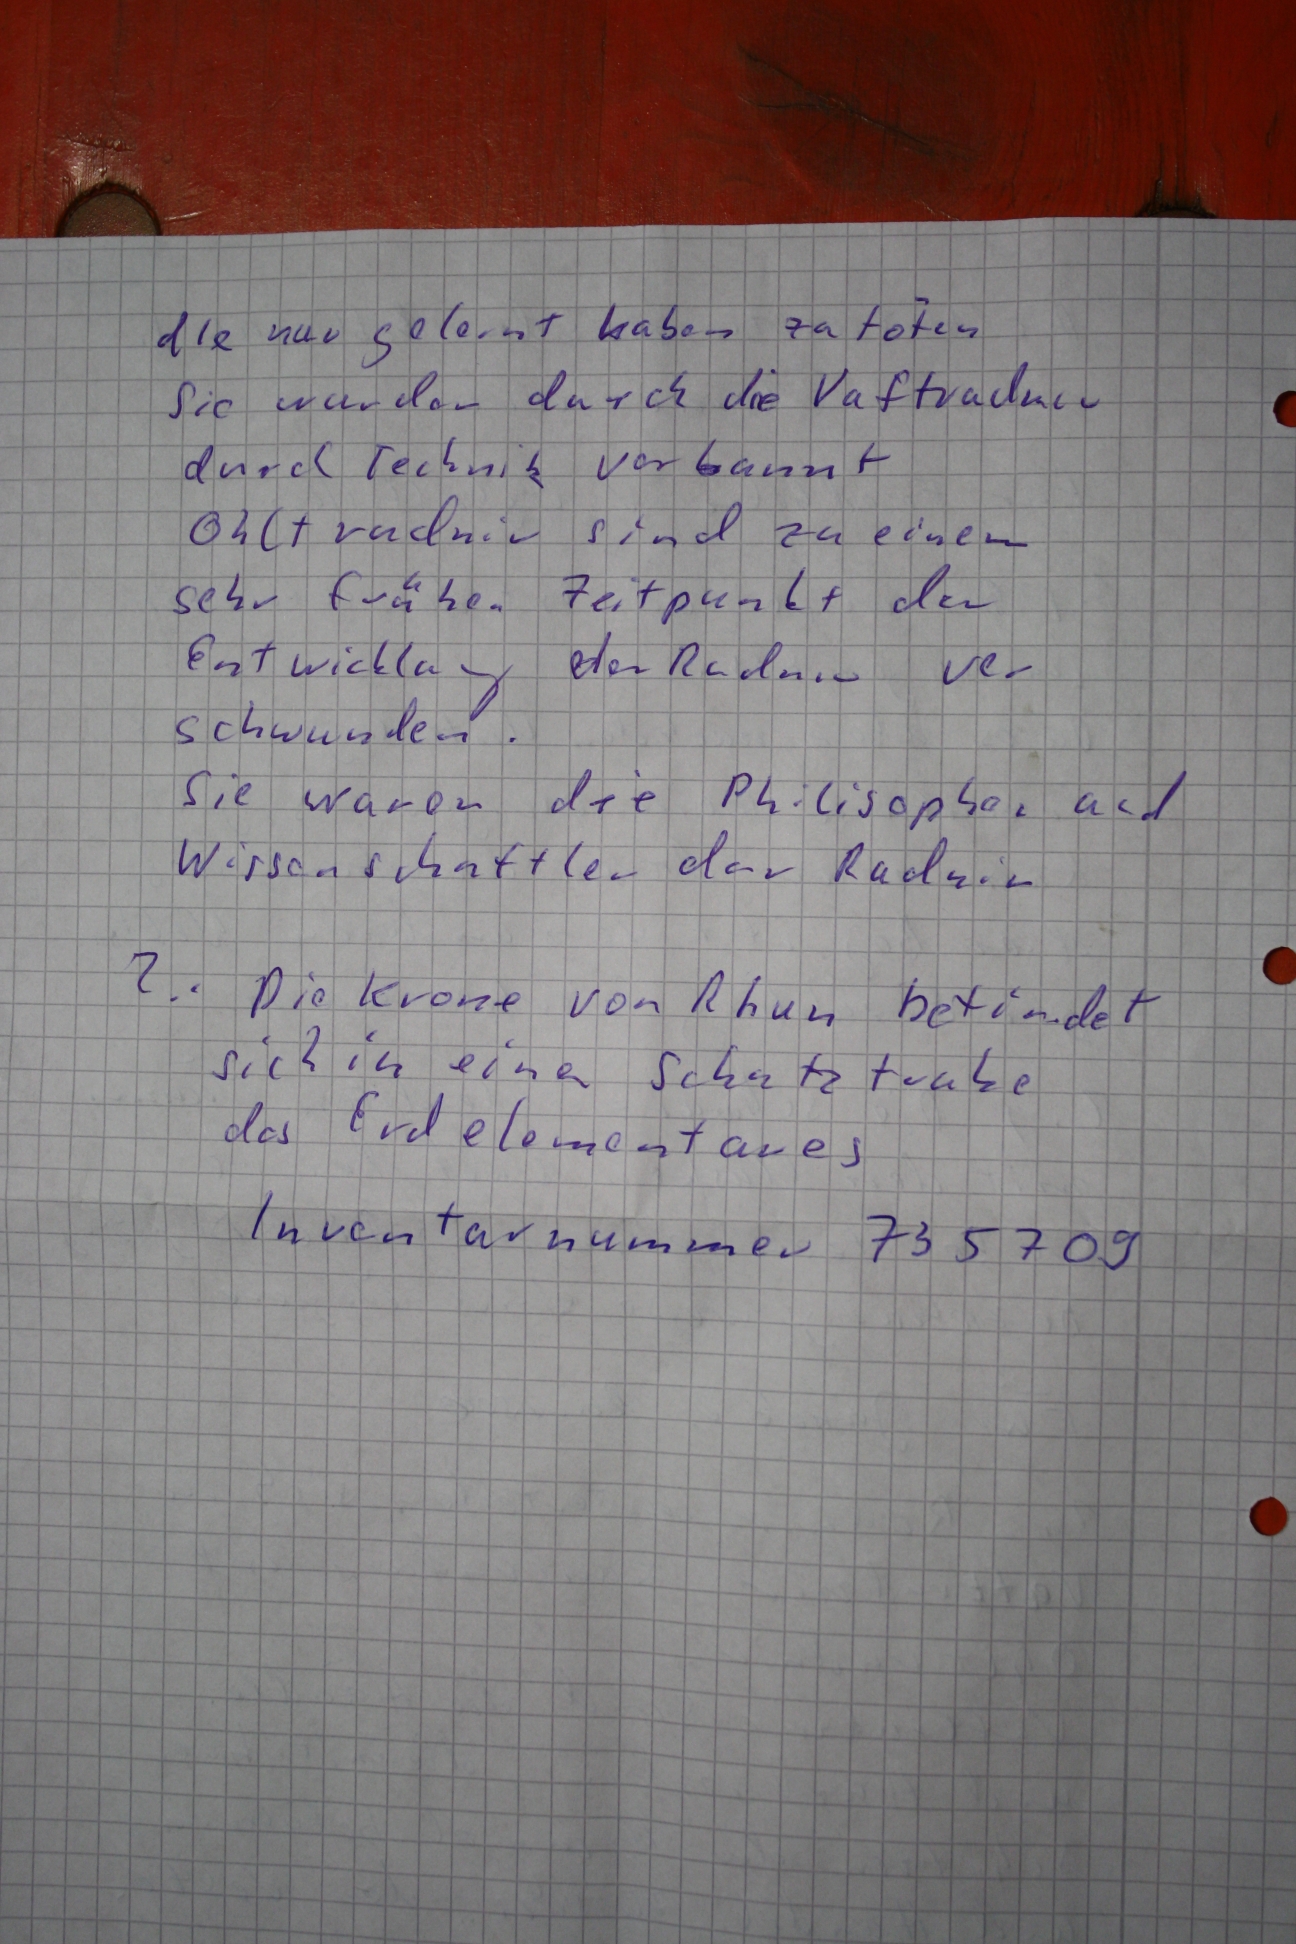 die nur gelernt haben zu töten
Sie wurden durch die Vaftradnir
durch Technik verbannt
Ohltradnir sind zu einem
sehr frühen Zeitpunkt der
Entwicklung der Radnir ver
schwunden.
Sie waren die Philisopher und
Wissenschaftler der Radnir
2.. Die Krone von Rhun befindet
sich in einer Schatztruhe
des Erdelementares
Inventarnummer 735709